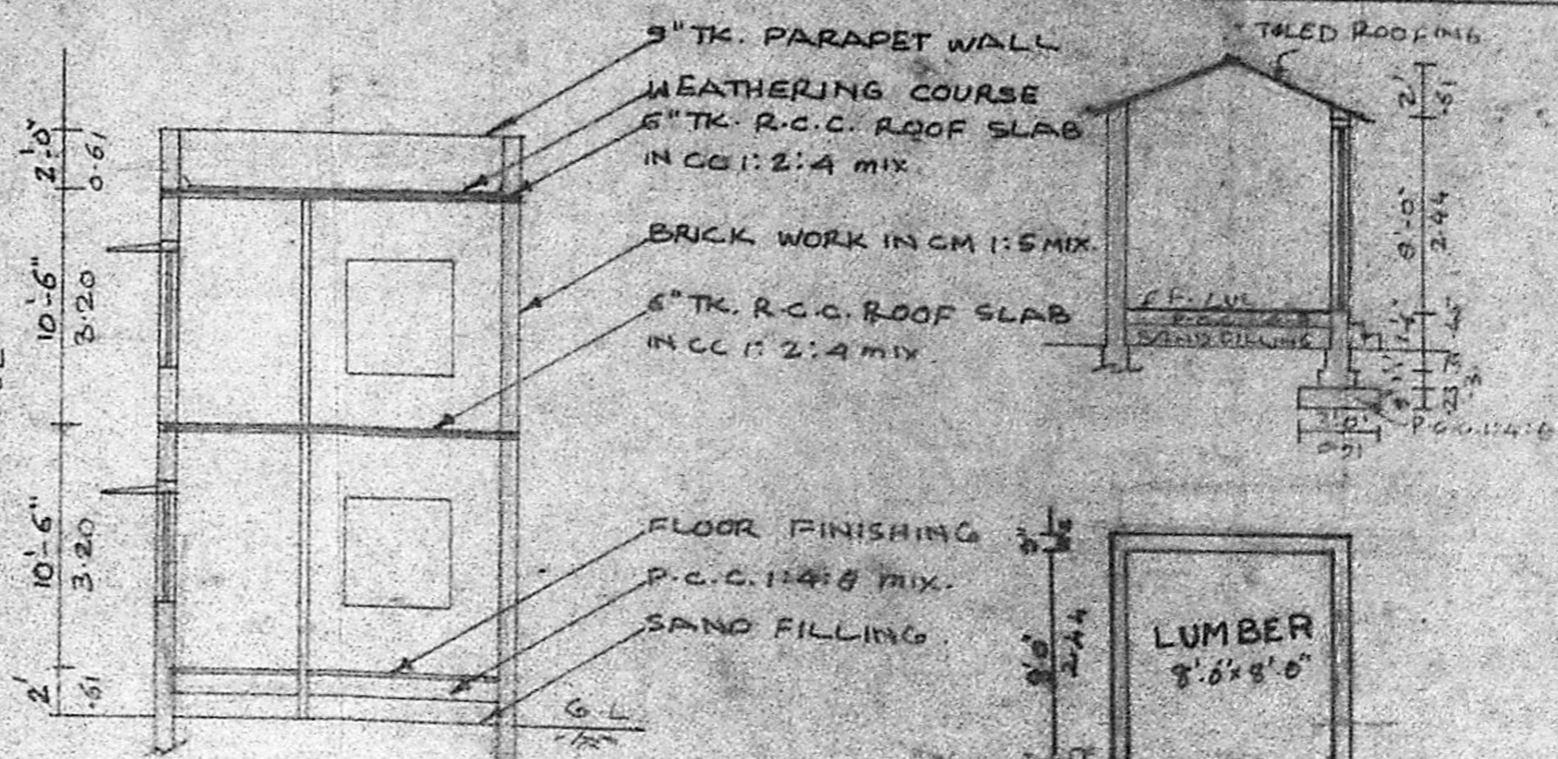 9" TK. PARAPET WALL
WEATHERING COURSE
6" TK. R.C.C. ROOF SLAB
IN CC 1:2:4 mix
BRICK WORK IN CM 1:5 MIX.
6" TK. R.C.C. ROOF SLAB
IN CC 1:2:4 mix.
FLOOR FINISHING
P.C.C. 1:4:8 mix.
SAND FILLING.
G.L
2'-0"
0.61
10'-6"
3.20
10'-6"
3.20
2'
.61
TILED ROOFING
2'
.61
8'-0"
2.44
SAND FILLING
.23
P.C.C. 1:4:8
2'-0"
8'-0"
2.44
LUMBER
8'-6"x8'-0"